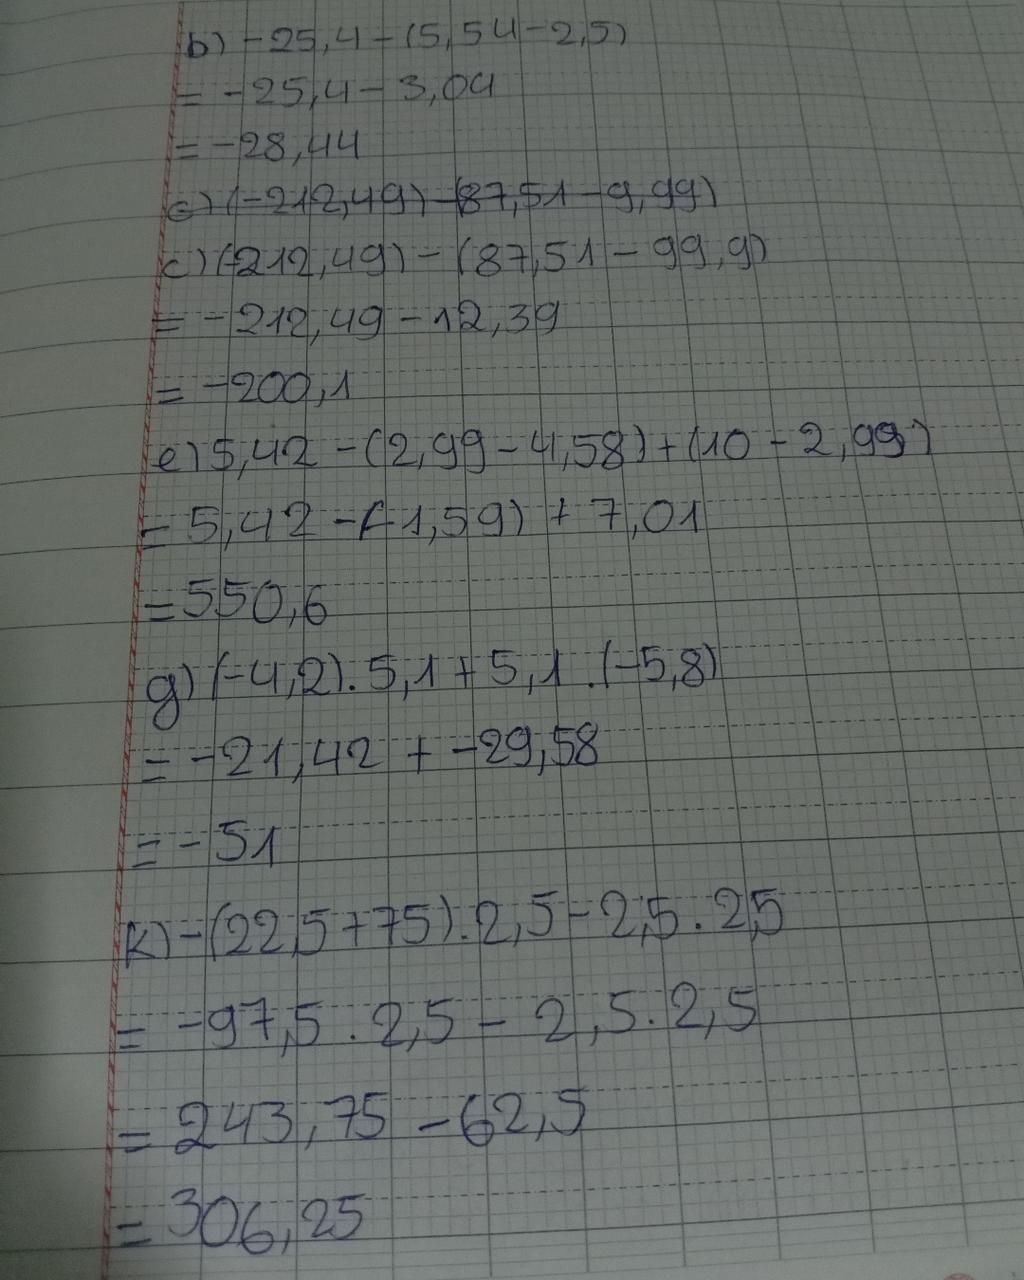 b) -25,4 - (5,54 - 2,5)
= -25,4 - 3,04
= -28,44
c) (-212,49) - (87,51 - 9,99)
c) (-212,49) - (87,51 - 99,9)
= -212,49 - 12,39
= -200,1
e) 5,42 - (2,99 - 4,58) + (10 - 2,99)
= 5,42 - (-1,59) + 7,01
= 550,6
g) (-4,2) . 5,1 + 5,1 . (-5,8)
= -21,42 + -29,58
= -51
k) -(22,5 + 75) . 2,5 - 2,5 . 2,5
= -97,5 . 2,5 - 2,5 . 2,5
= 243,75 - 62,5
= 306,25